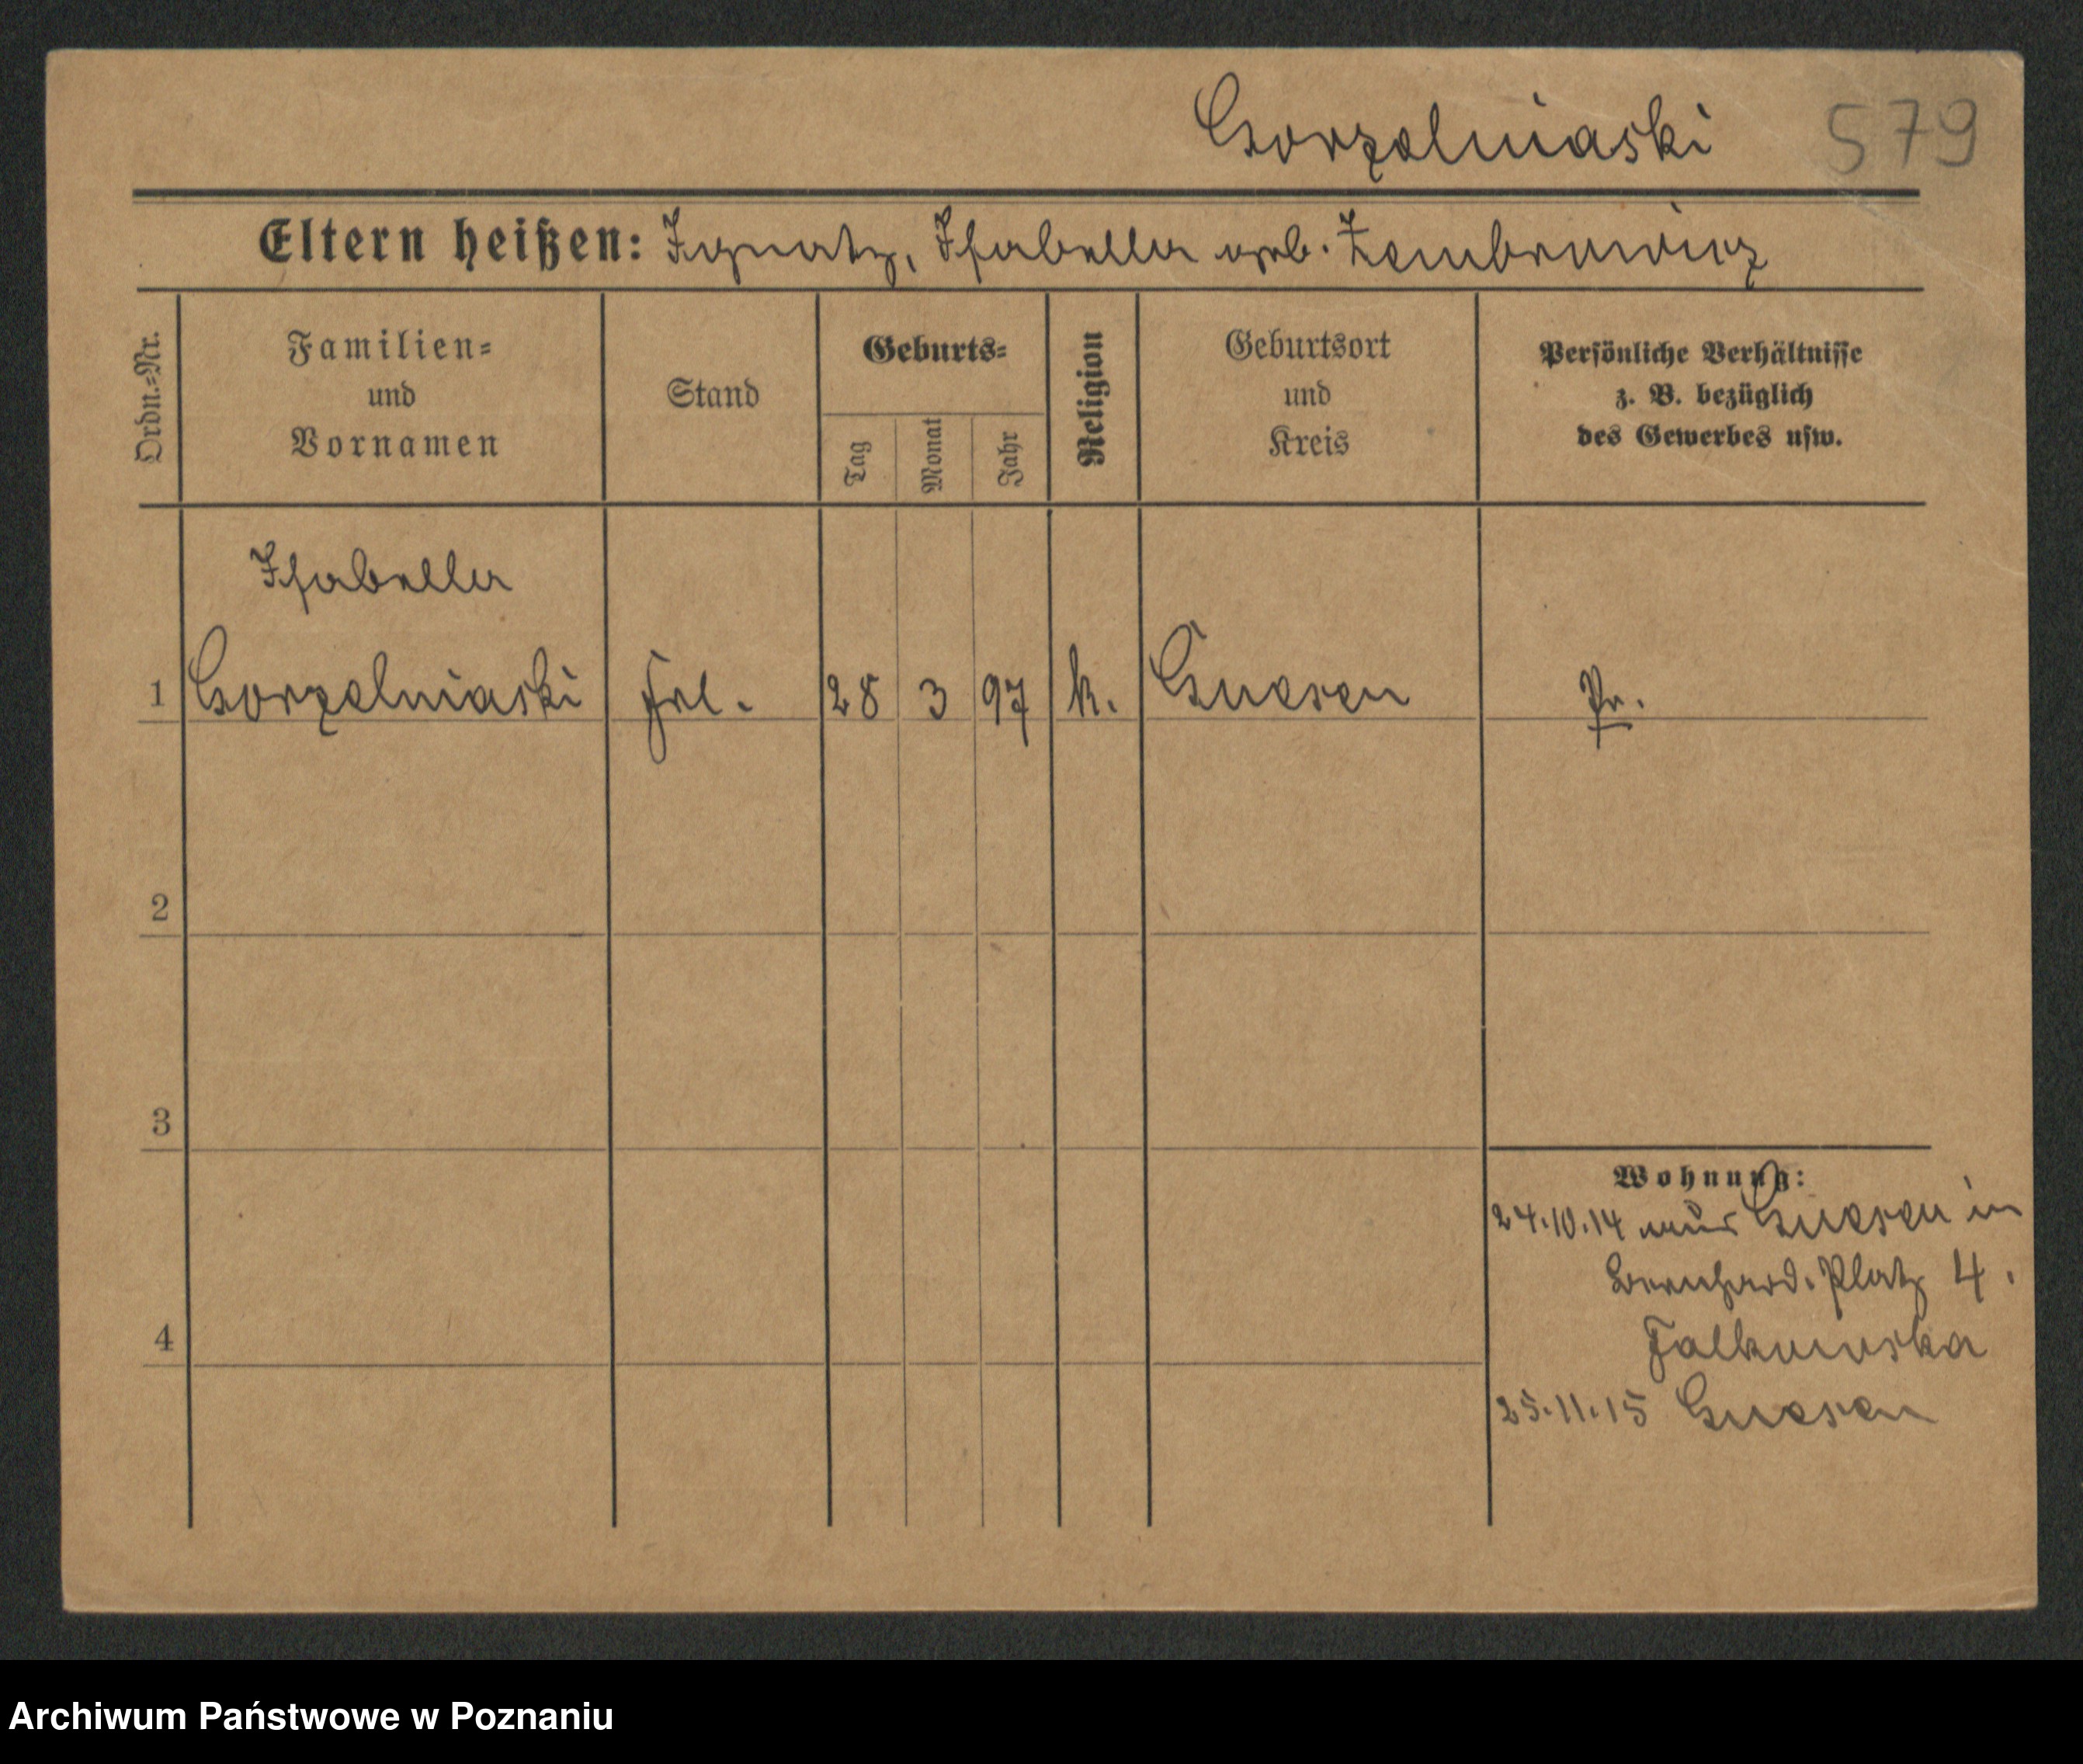 Gorzelniaski 579
Eltern heißen: Ignatz, Isabella geb. Zembrowicz
Ordn.-Nr.
Familien-
und
Vornamen
Stand
Geburts-
Tag
Monat
Jahr
Religion
Geburtsort
und
Kreis
Persönliche Verhältnisse
z. B. bezüglich
des Gewerbes usw.
Isabella
1 Gorzelniaski Frl. 28 3 97 k. Gnesen Pr.
2
3
4
Wohnung:
24.10.14 aus Gnesen in
Bernhard. Platz 4.
Falkowska
25.11.15 Gnesen
Archiwum Państwowe w Poznaniu